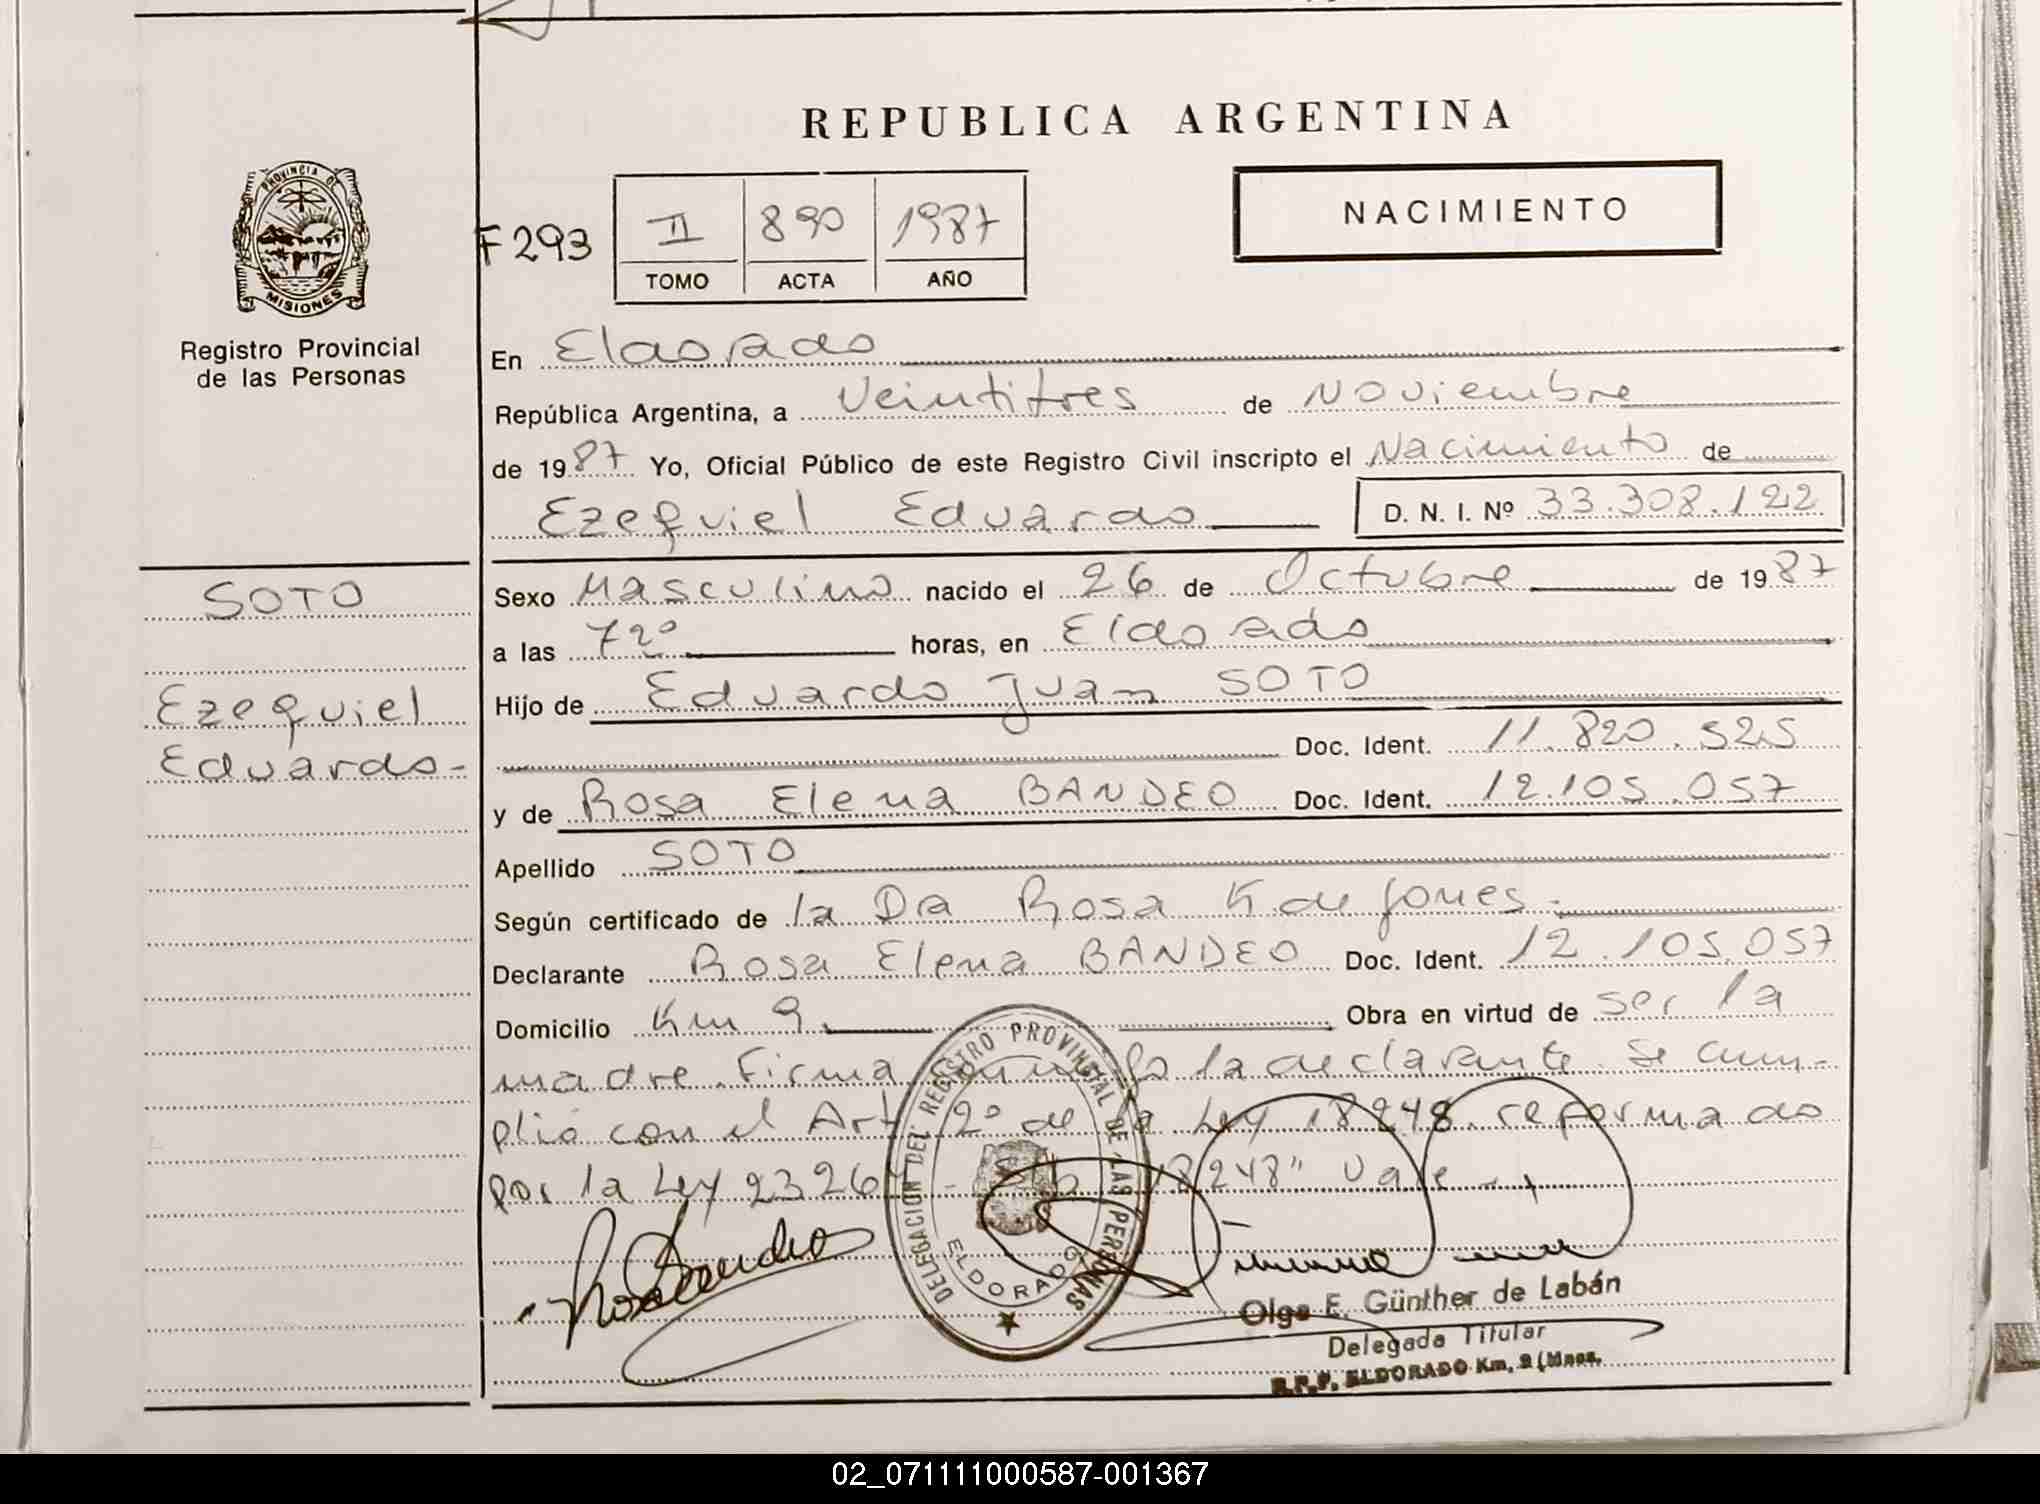 REPUBLICA ARGENTINA
NACIMIENTO
PROVINCIA DE
MISIONES
Registro Provincial
de las Personas
F293
II 890 1987
TOMO ACTA AÑO
En Eldorado
República Argentina, a Veintitres de Noviembre
de 1987 Yo, Oficial Público de este Registro Civil inscripto el Nacimiento de
Ezequiel Eduardo D. N. I. Nº 33.308.122
SOTO
Ezequiel
Eduardo-
Sexo Masculino nacido el 26 de Octubre de 1987
a las 7 20 horas, en Eldorado
Hijo de Eduardo Juan SOTO
Doc. Ident. 11.820.525
y de Rosa Elena BANDEO Doc. Ident. 12.105.057
Apellido SOTO
Según certificado de la Dra Rosa K de Jones.-
Declarante Rosa Elena BANDEO Doc. Ident. 12.105.057
Domicilio Km 9 Obra en virtud de ser la
madre. Firma la declarante. Se cum-
plió con el Art 2º de la Ley 18248. reformado
por la Ley 2326 18248" Vale
DELEGACION DEL REGISTRO PROVINCIAL DE LAS PERSONAS
ELDORADO
Olga E. Günther de Labán
Delegada Titular
R.P.P. ELDORADO Km. 9 (Mnes.
02_071111000587-001367